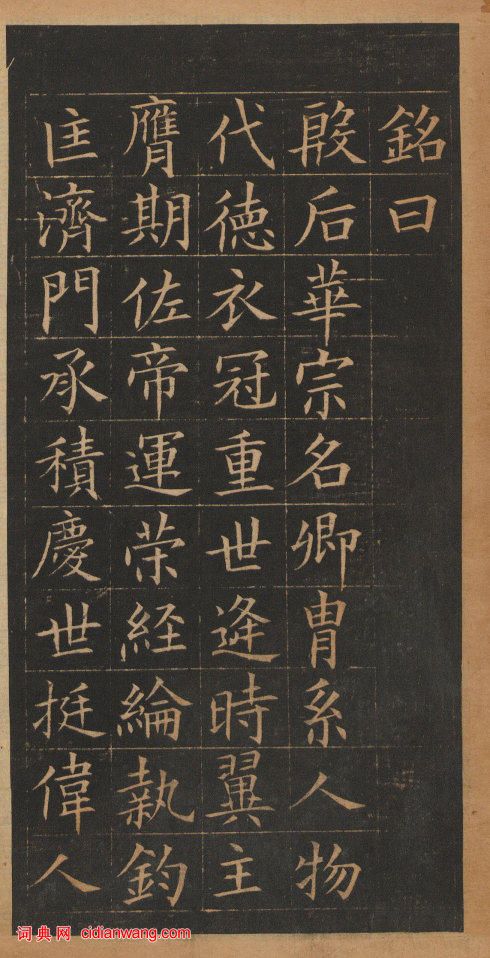 銘曰
殷后華宗名卿胄系人物
代德衣冠重世逄時翼主
膺期佐帝運荣経綸執鈞
匡濟門承積慶世挺偉人
词典网 cidianwang.com